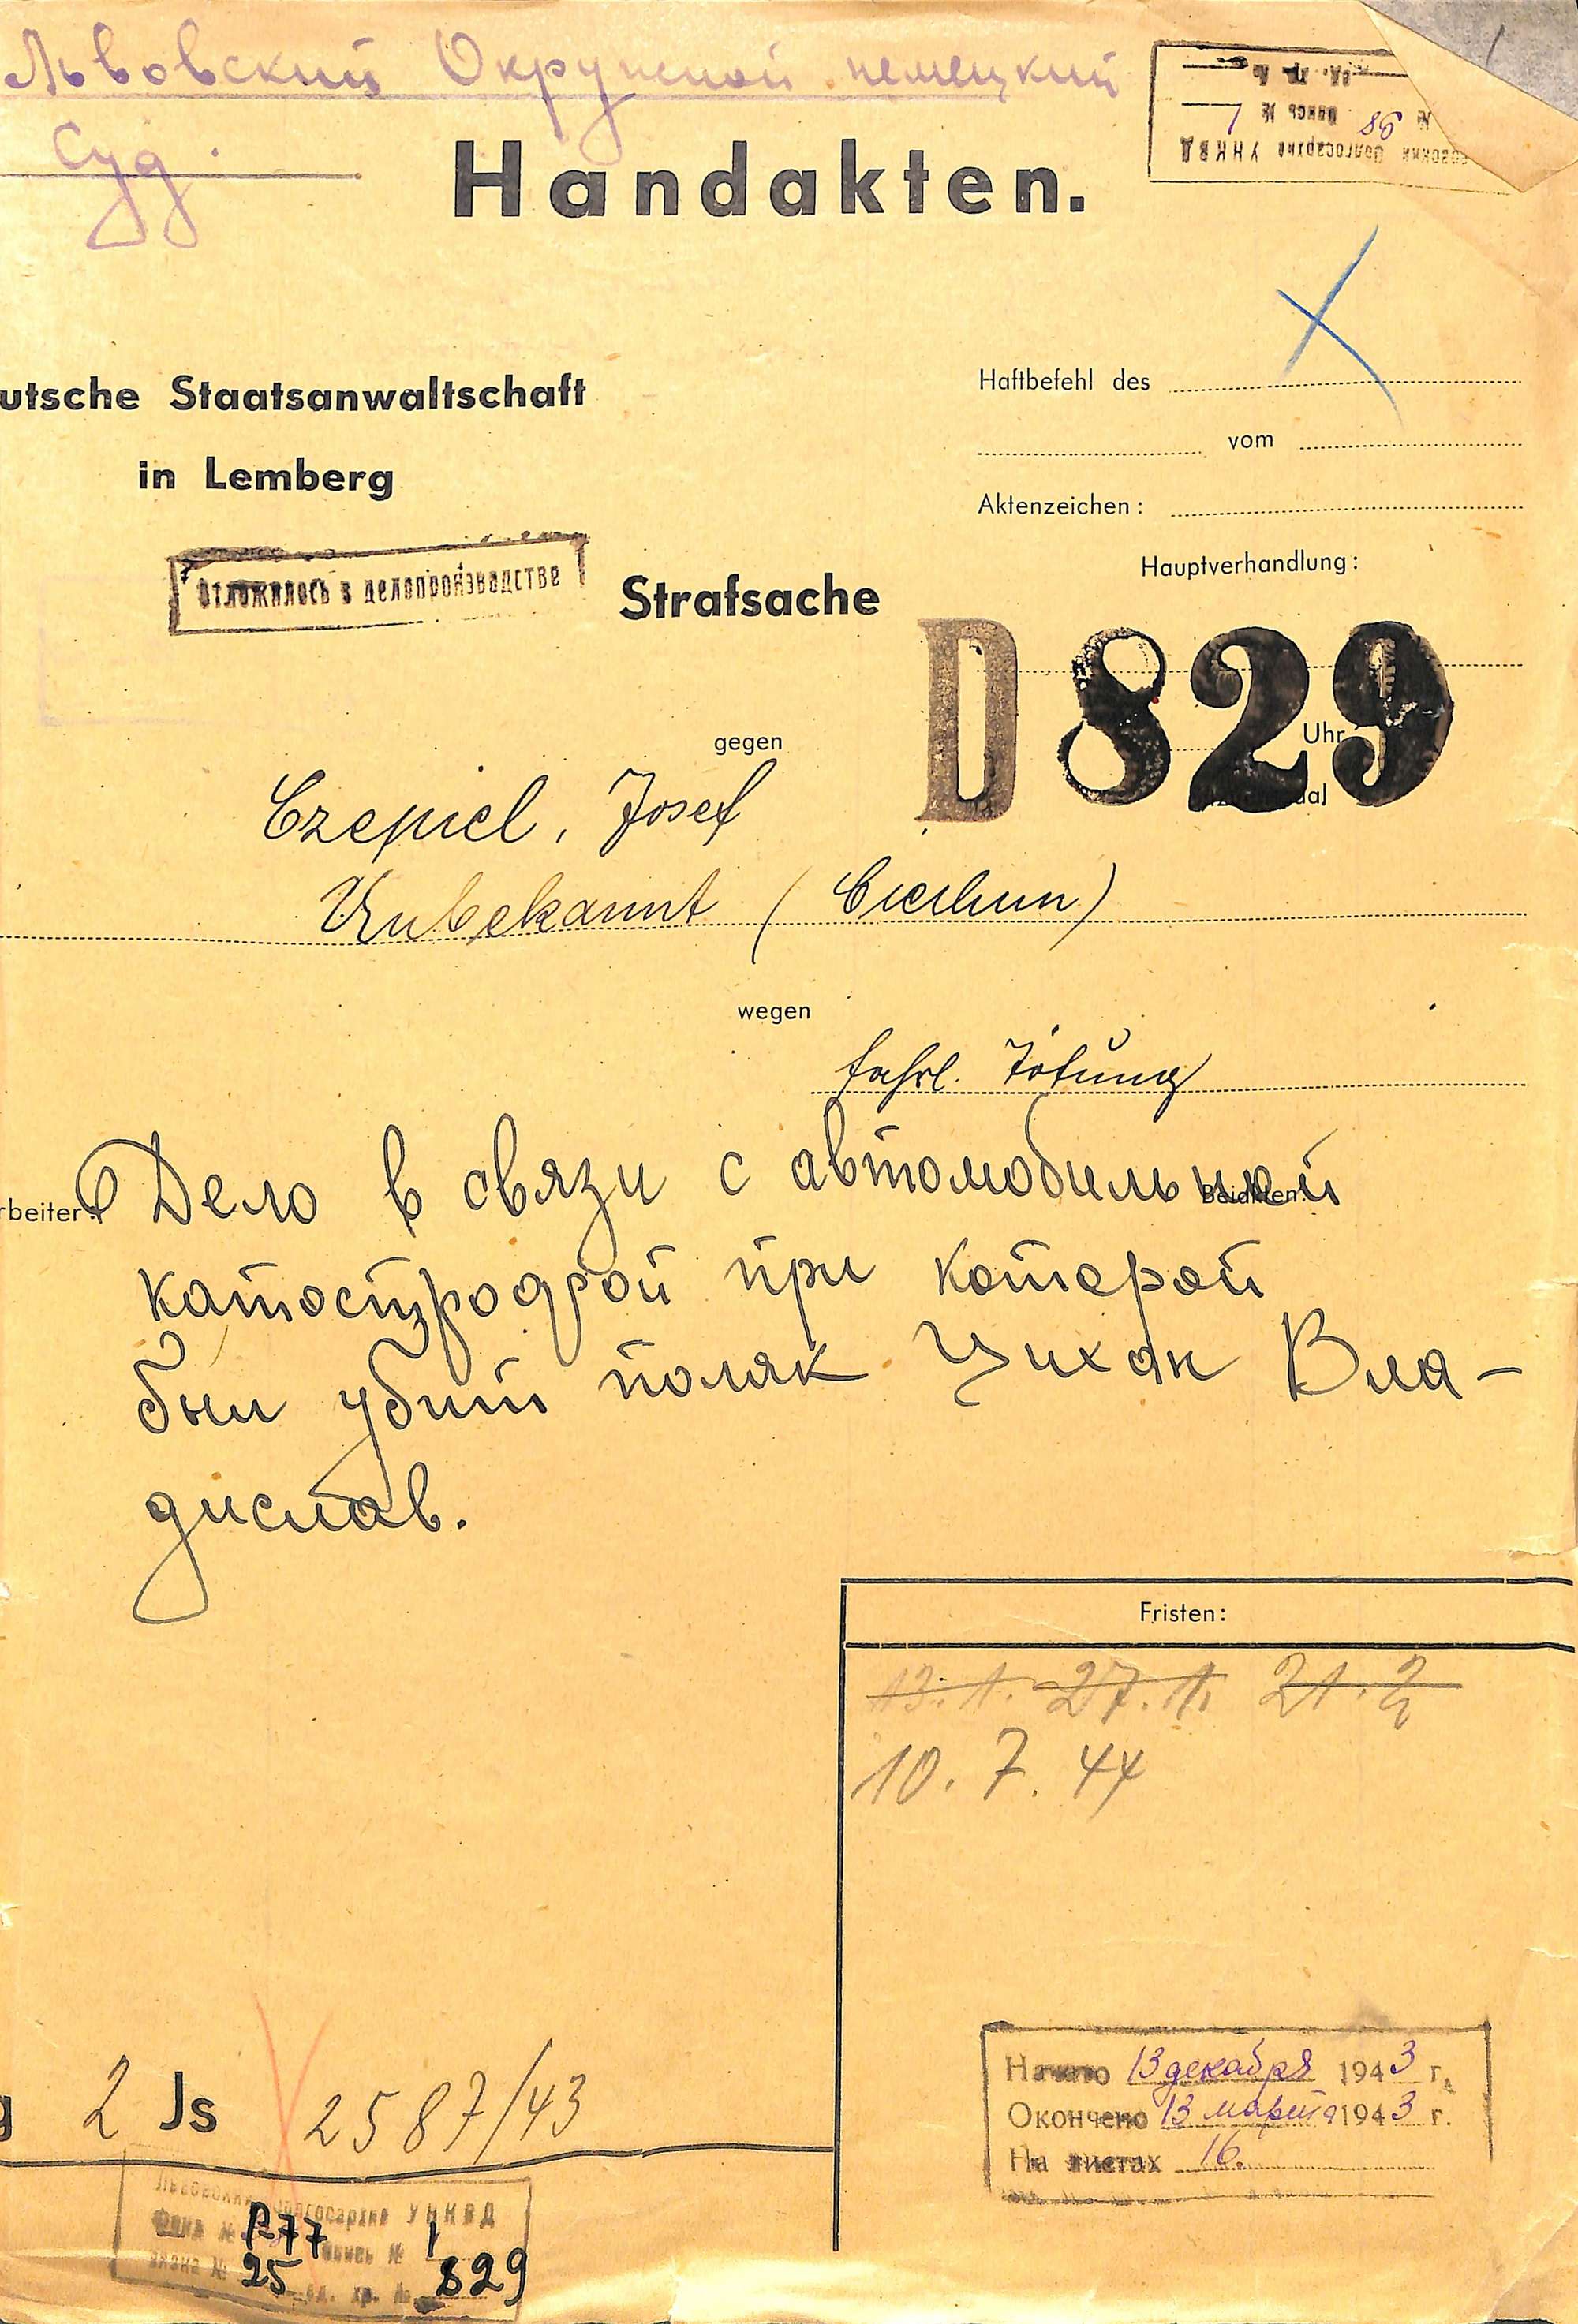 Львовский Окружной немецкий
суд.
Handakten.
УНКВД
Опись №
98
utsche Staatsanwaltschaft
in Lemberg
Haftbefehl des
vom
Aktenzeichen:
Hauptverhandlung:
Отложилось в делопроизводстве
Strafsache
D 829
Uhr
gegen
Czepiel, Josef
Unbekannt (
wegen
fahrl. Tötung
rbeiter:
Дело в связи с автомобильной
катострофой при которой
был убит поляк Цихан Вла-
дислав.
Fristen:
13.1. 27.1. 21.2
10.7.44
g 2 Js 2587/43
Начато 13 декабря 1943 г.
Окончено 13 марта 1943 г.
На листах 16.
Львовский Облгосархив УНКВД
Фонд № Р77 Опись № 1
вязка № 25 ед. хр. № 829